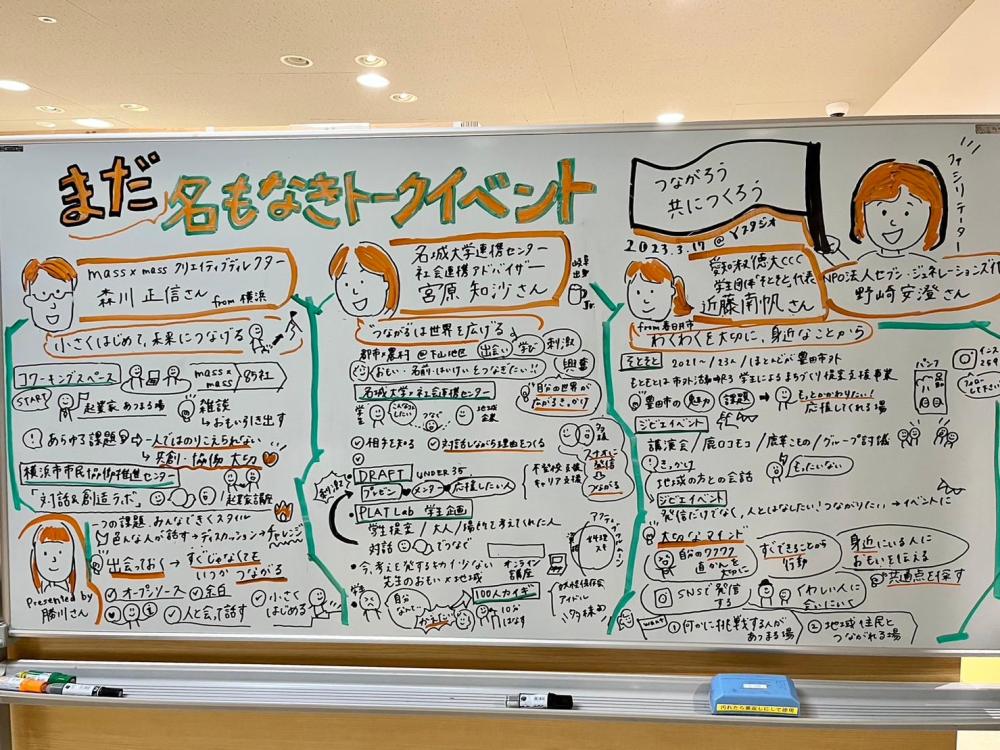 まだ名もなきトークイベント
つながろう
共につくろう
2023.3.17@Yスタジオ
ファシリテーター
NPO法人セブン・ジェネレーションズ代
野崎安澄さん
mass×mass クリエイティブディレクター
森川 正信さん from 横浜
小さくはじめて、未来につなげる
コワーキングスペース
mass×mass
85社
START
起業家あつまる場
雑談
→おもい引き出す
あらゆる課題
→一人ではのりこえられない
→共創・協働 大切
横浜市市民協働推進センター
「対話&創造ラボ」
起業家講座
一つの課題、みんなできくスタイル
色んな人が話す→ディスカッション→チャレンジ
出会っておく→すぐじゃなくても
いつか つながる
オープンソース
余白
人と会って話す
小さくはじめる
Presented by
勝川さん
名城大学連携センター
社会連携アドバイザー
宮原 知沙さん
岐阜出身
"つながる"は世界を広げる
都市×農村 @下山地区
出会い
学び
刺激
興奮
おもい・名前・はいけいをつなぎたい!!
自分の世界が
広がるきっかけ
名城大学×社会連携センター
学生
こんなことしたい
つなぐ
地域
企業
相手を知る
対話しながら理由をつくる
スナオに
発信
つながる
DRAFT UNDER35
プレゼン
メンター
応援したい人
不登校支援
キャリア支援
PLAT Lab 学生企画
学生提案/大人/場所を考えてくれた人
対話
でつなぐ
オンライン
講座
先生のおもい×地域
100人カイギ
10分
はなす
アイドル
愛知淑徳大CCC
学生団体"そとそと"代表
近藤南帆さん
from春日井市
わくわくを大切に、身近なことから
そとそと 2021〜/23人/ほとんどが豊田市外
もともとは市外活動に よる 学生によるまちづくり提案支援事業
豊田市の
魅力
課題
→もっとかかわりたい!
応援してくれる場
ジビエイベント
講演会/鹿ロコモコ/鹿革こもの/グループ討議
きっかけ
もったいない
地域の方との会話
ジビエイベント
発信だけでなく、人とはなしたい!つながりたい→イベントに
大切なマインド
自分のワクワク
直かんを大切に
すぐできることから
行動
身近にいる人に
おもいを伝える
共通点を探す
SNSで発信
する
くわしい人に
会いにいく
want
①何かに挑戦する人が
あつまる場
②地域住民と
つながれる場
パンフ
インスタ
フォロー
してください
汚れたら裏返しにして使用